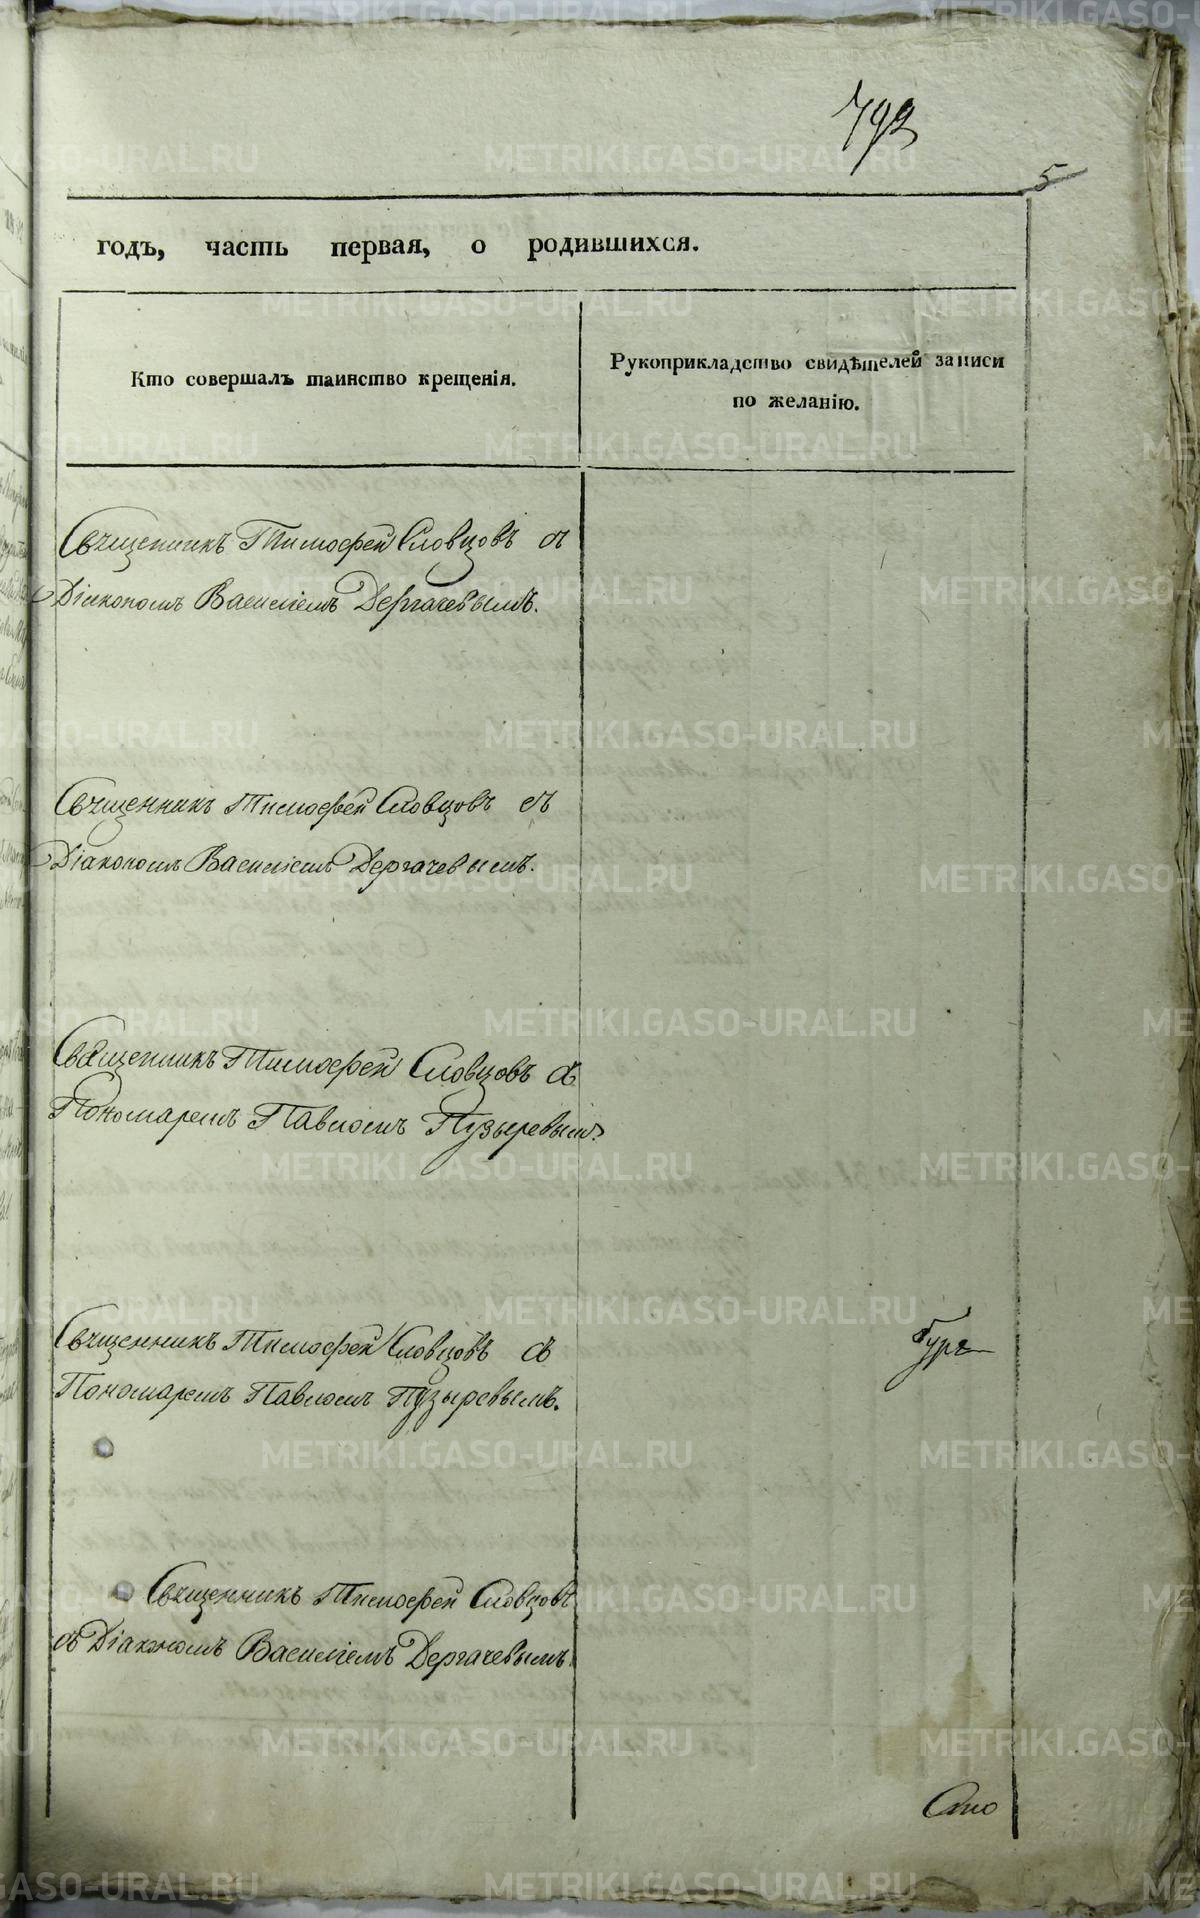 792
5
годъ, часть первая, о родившихся.
Кто совершалъ таинство крещенія.
Рукоприкладство свидѣтелей записи
по желанію.
Священникъ Тимофей Словцовъ съ
Діакономъ Василіемъ Дергачевымъ.
Священникъ Тимофей Словцовъ съ
Діакономъ Василіемъ Дергачевымъ.
Священникъ Тимофей Словцовъ съ
Пономаремъ Павломъ Пузыревымъ.
Священникъ Тимофей Словцовъ съ
Пономаремъ Павломъ Пузыревымъ.
Священникъ Тимофей Словцовъ
съ Діакономъ Василіемъ Дергачевымъ.
METRIKI.GASO-URAL.RU